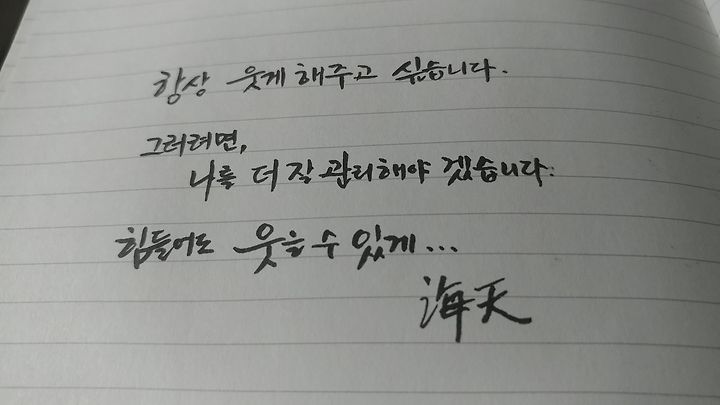 항상 웃게 해주고 싶습니다.
그러려면,
나를 더 잘 관리해야 겠습니다.
힘들어도 웃을 수 있게...
海天